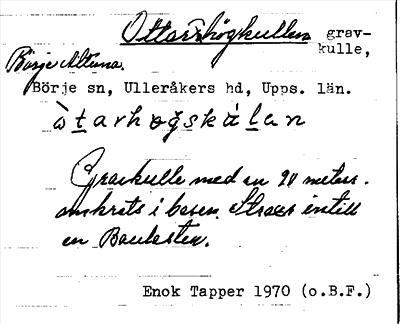 Ottarshögkullen grav-
kulle,
Börje Altuna.
Börje sn, Ulleråkers hd, Upps. län.
òtarhøgskálan
Gravkulle med en 90 meters.
omkrets i basen. Strax intill
en Bautasten.
Enok Tapper 1970 (o.B.F.)